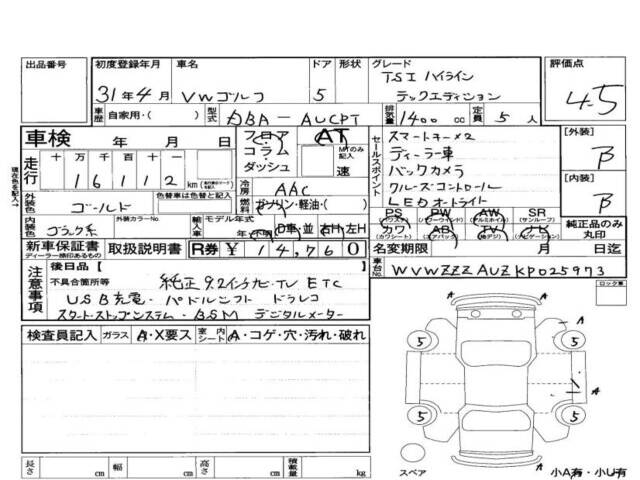 出品番号 初度登録年月 車名 ドア 形状 グレード 評価点
31年4月 VWゴルフ 5 TSI ハイライン
テックエディション 4-5
車歴 自家用・( ) 型式 DBA - AUCPT 排気量 1400 cc 定員 5 人
車検 年 月 日 フロア AT セールスポイント スマートキー×2 [外装]
走行 十 万 千 百 十 一 コラム MTのみ記入 ディーラー車 B
1 6 1 1 2 km ダッシュ 速 バックカメラ
現在の色を記入→ 色替車は色替前 冷房 AAC クルーズコントロール [内装]
外装色 ゴールド 燃料 ガソリン・軽油・( ) LEDオートライト B
外装カラーNo. 輸入車 モデル年式 PS PW AW SR
内装色 ブラック系 年(不明) D車・並 右H・左H カワ AB TV ナビ 純正品のみ丸印
(カワシート) (エアバック) (地デジ) (ナビゲーション)
新車保証書 取扱説明書 R券 ¥ 14,760 名変期限 月 日迄
ディーラー捺印あるもの
注意事項 後日品 [ ] 車台No. WVWZZZAUZKP025973
不具合箇所等 純正9.2インチナビ・TV ETC ロック車
USB充電・パドルシフト ドラレコ
スタートストップシステム・BSM デジタルメーター
検査員記入 ガラス A・X要ス 室内シート A・コゲ・穴・汚れ・破れ
A
5 5
A
A
5 5
長さ cm 幅 cm 高さ cm 積載量 kg
スペア A 小A有・小U有